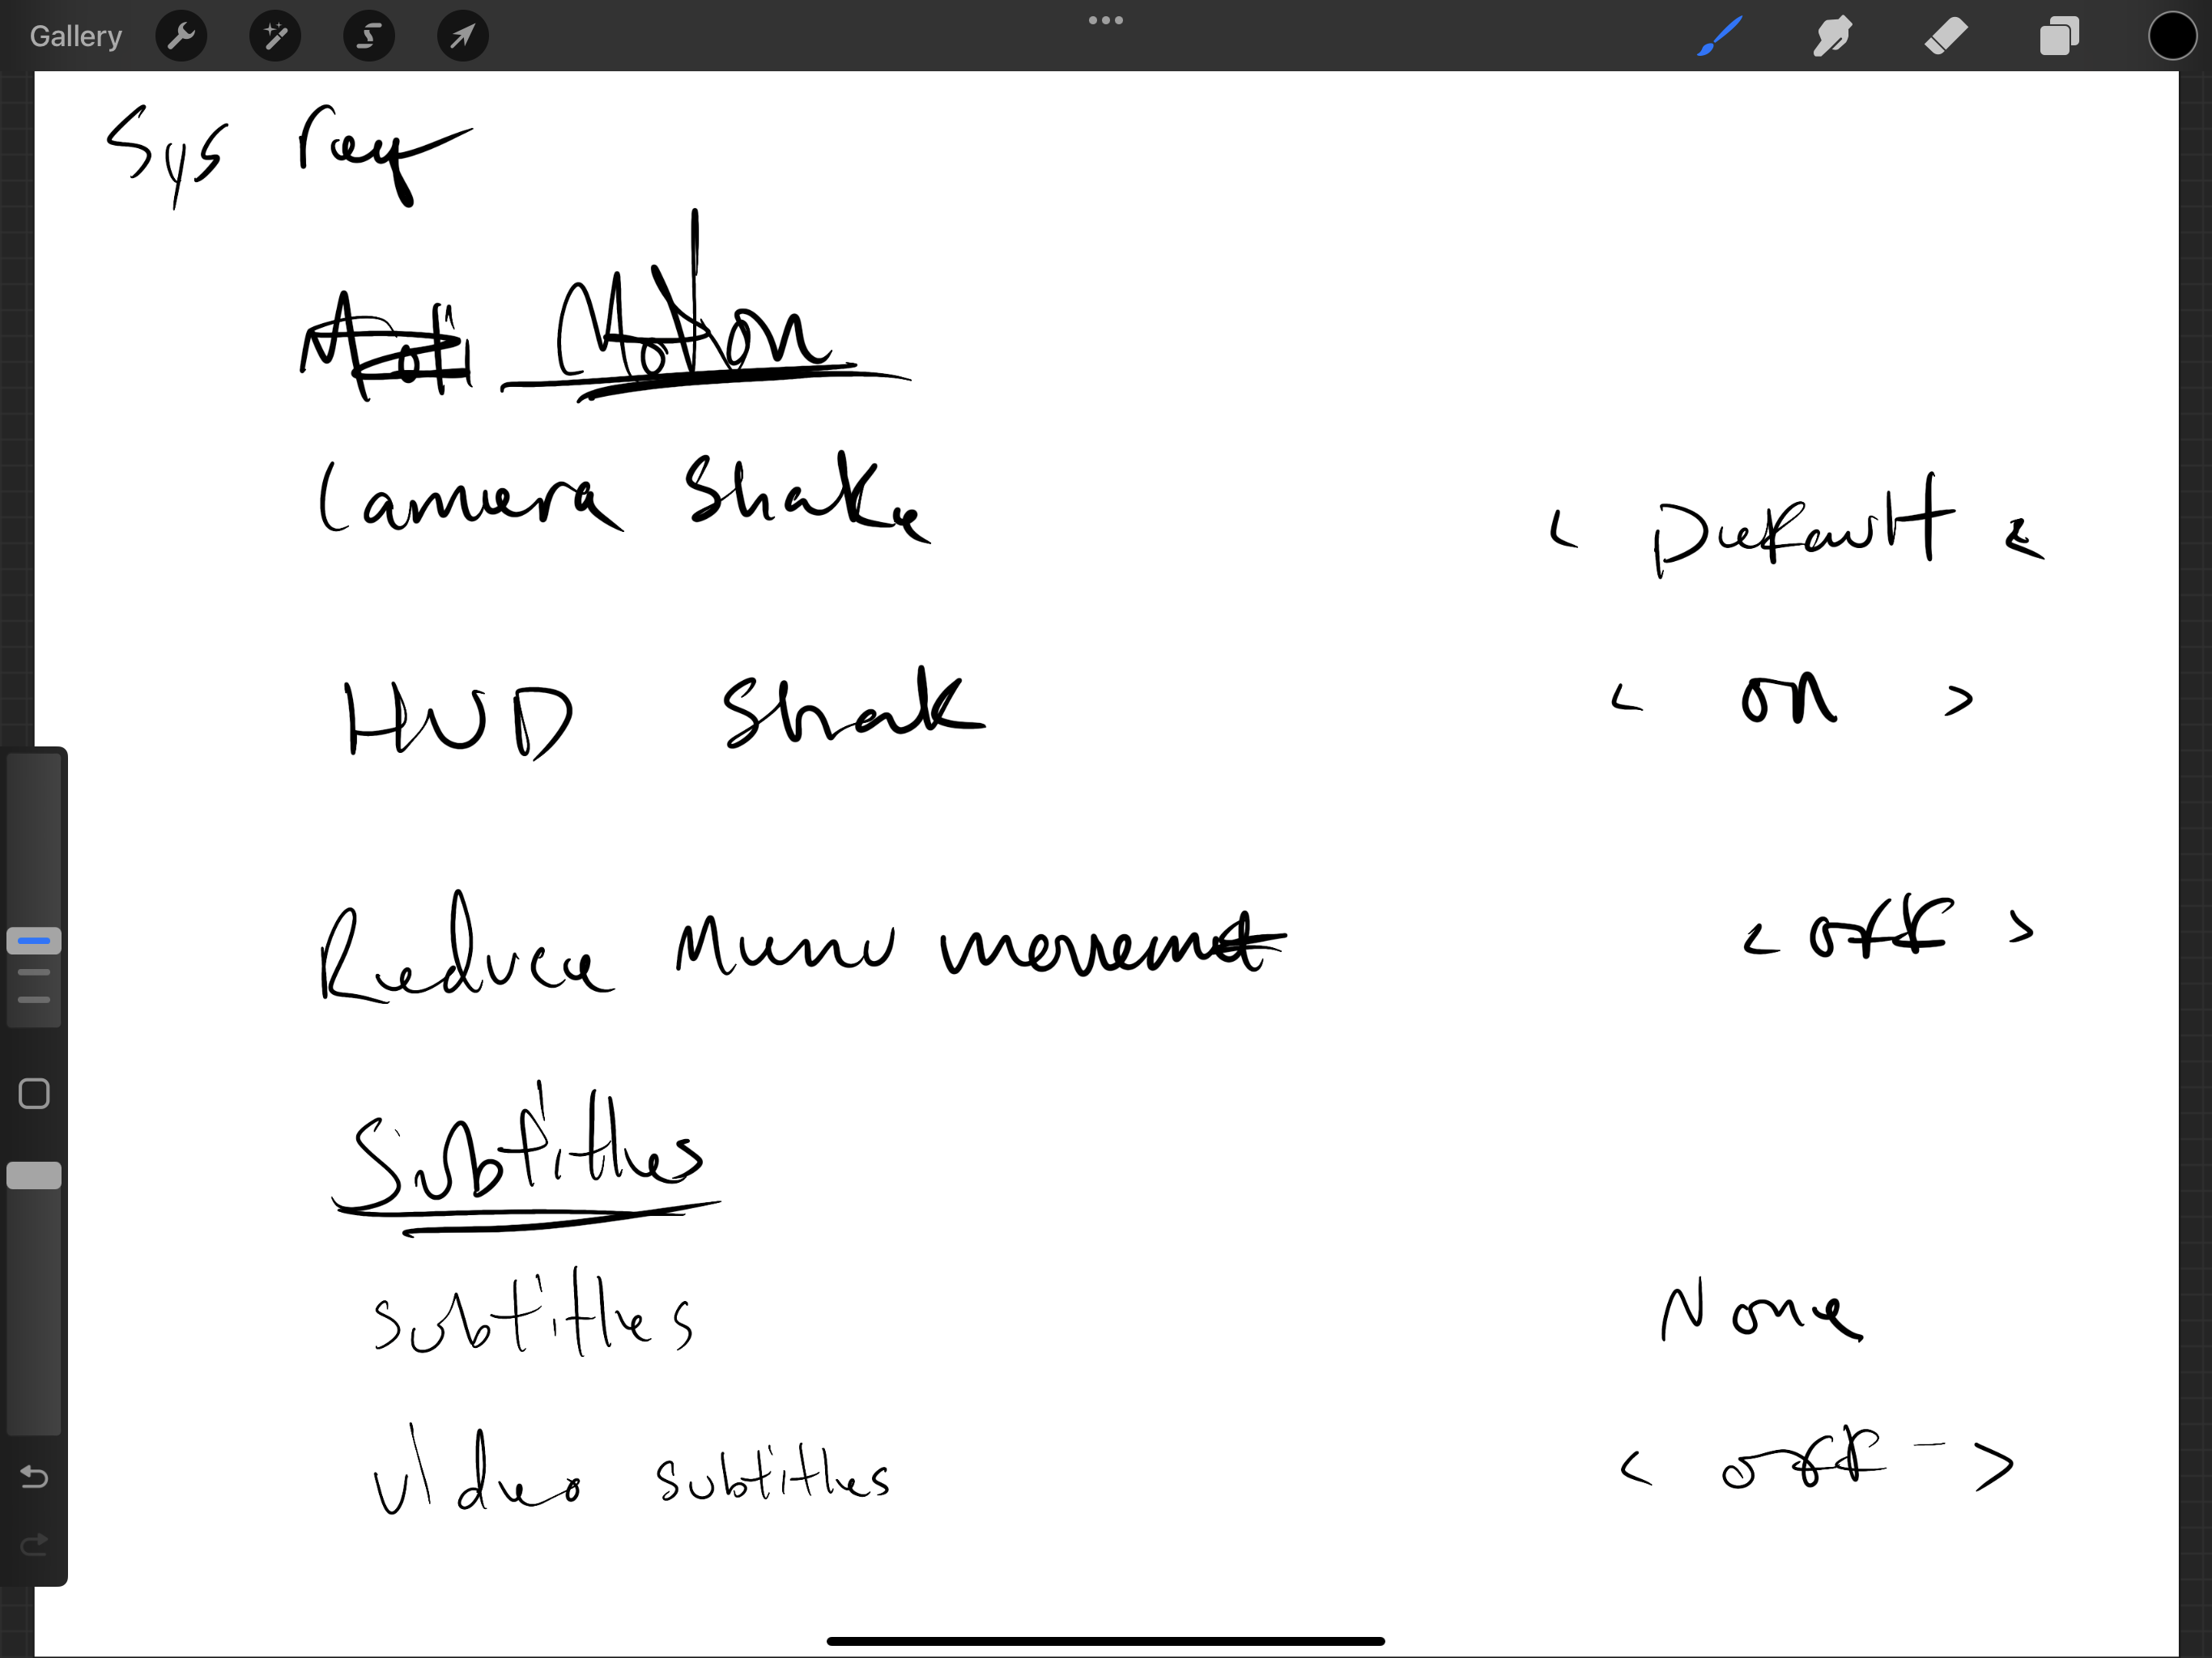 Gallery
Sys req
Motion
Camera Shake < Default <
HUD Shak < on >
Reduce Menu movement < off >
Subtitles
subtitles None
Video subtitles < off - >